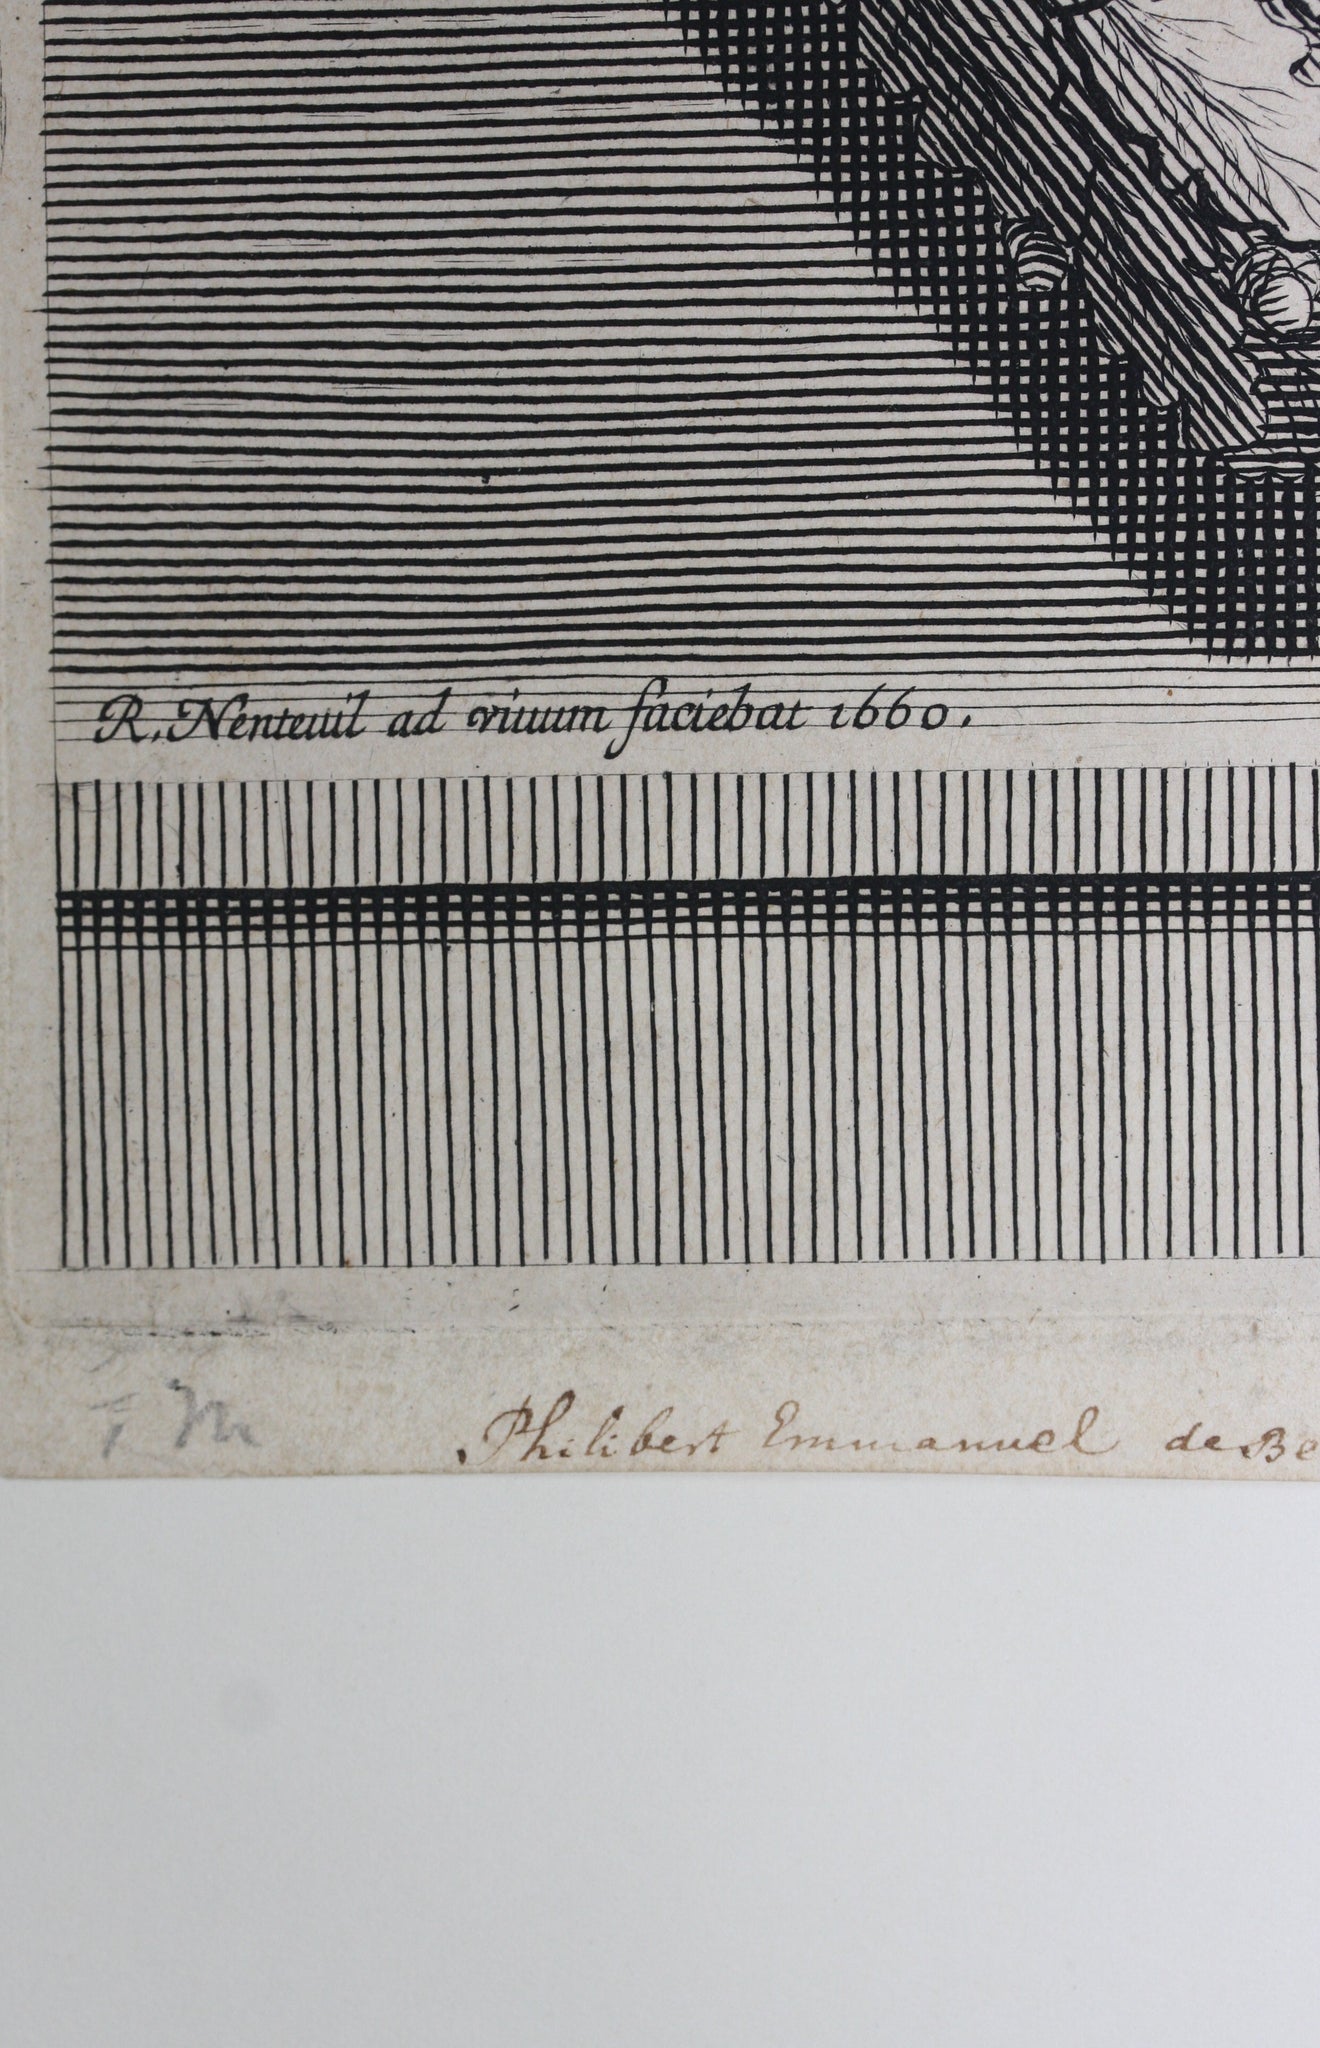 R. Nenteuil ad viuum faciebat 1660.
Philibert Emmanuel de Be